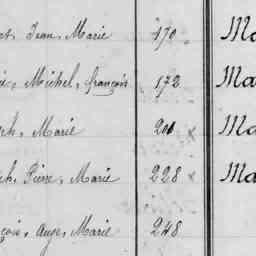 Jean, Marie 170 Ma
Michel, françois 172 Ma
Marie 200 Ma
Pierre, Marie 228 Ma
Ange, Marie 248